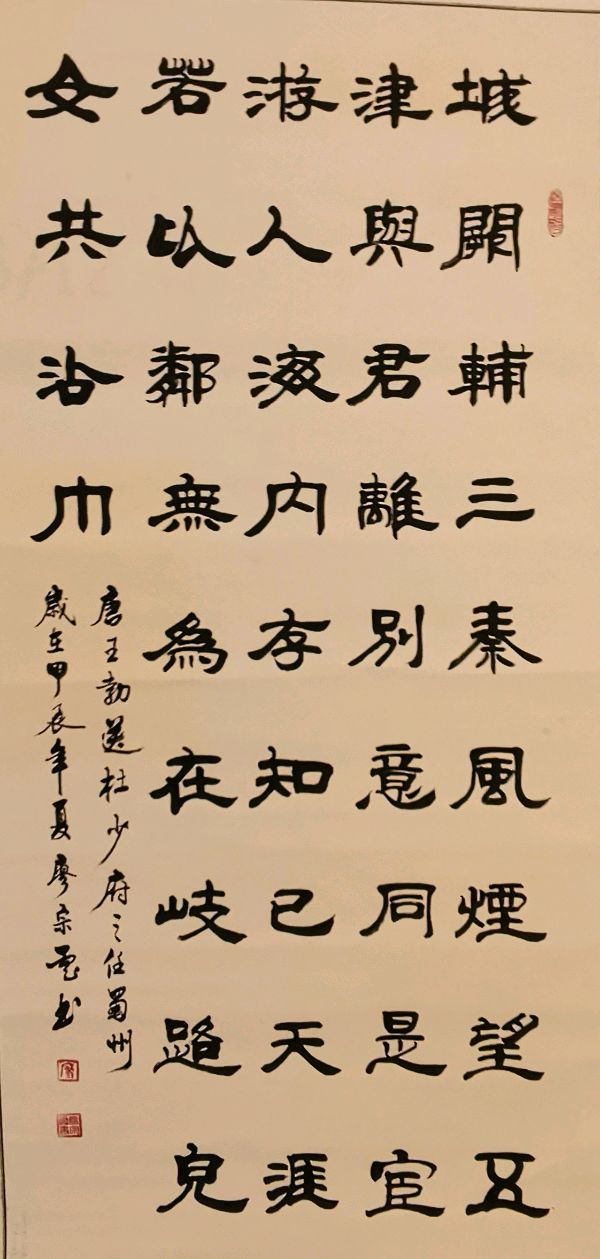 城闕輔三秦風煙望五
津與君離別意同是宦
游人海内存知己天涯
若比鄰無為在岐路兒
女共沾巾
唐王勃送杜少府之任蜀州
歲在甲辰年夏廖宗书